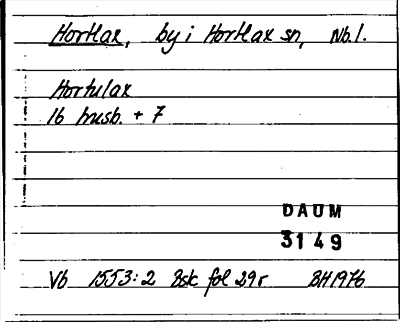 Hortlax, by i Hortlax sn, Nb.l.
Hortulax
16 husb. + 7
DAUM
3149
Vb 1553:2 Bsk fol 29r BH1976